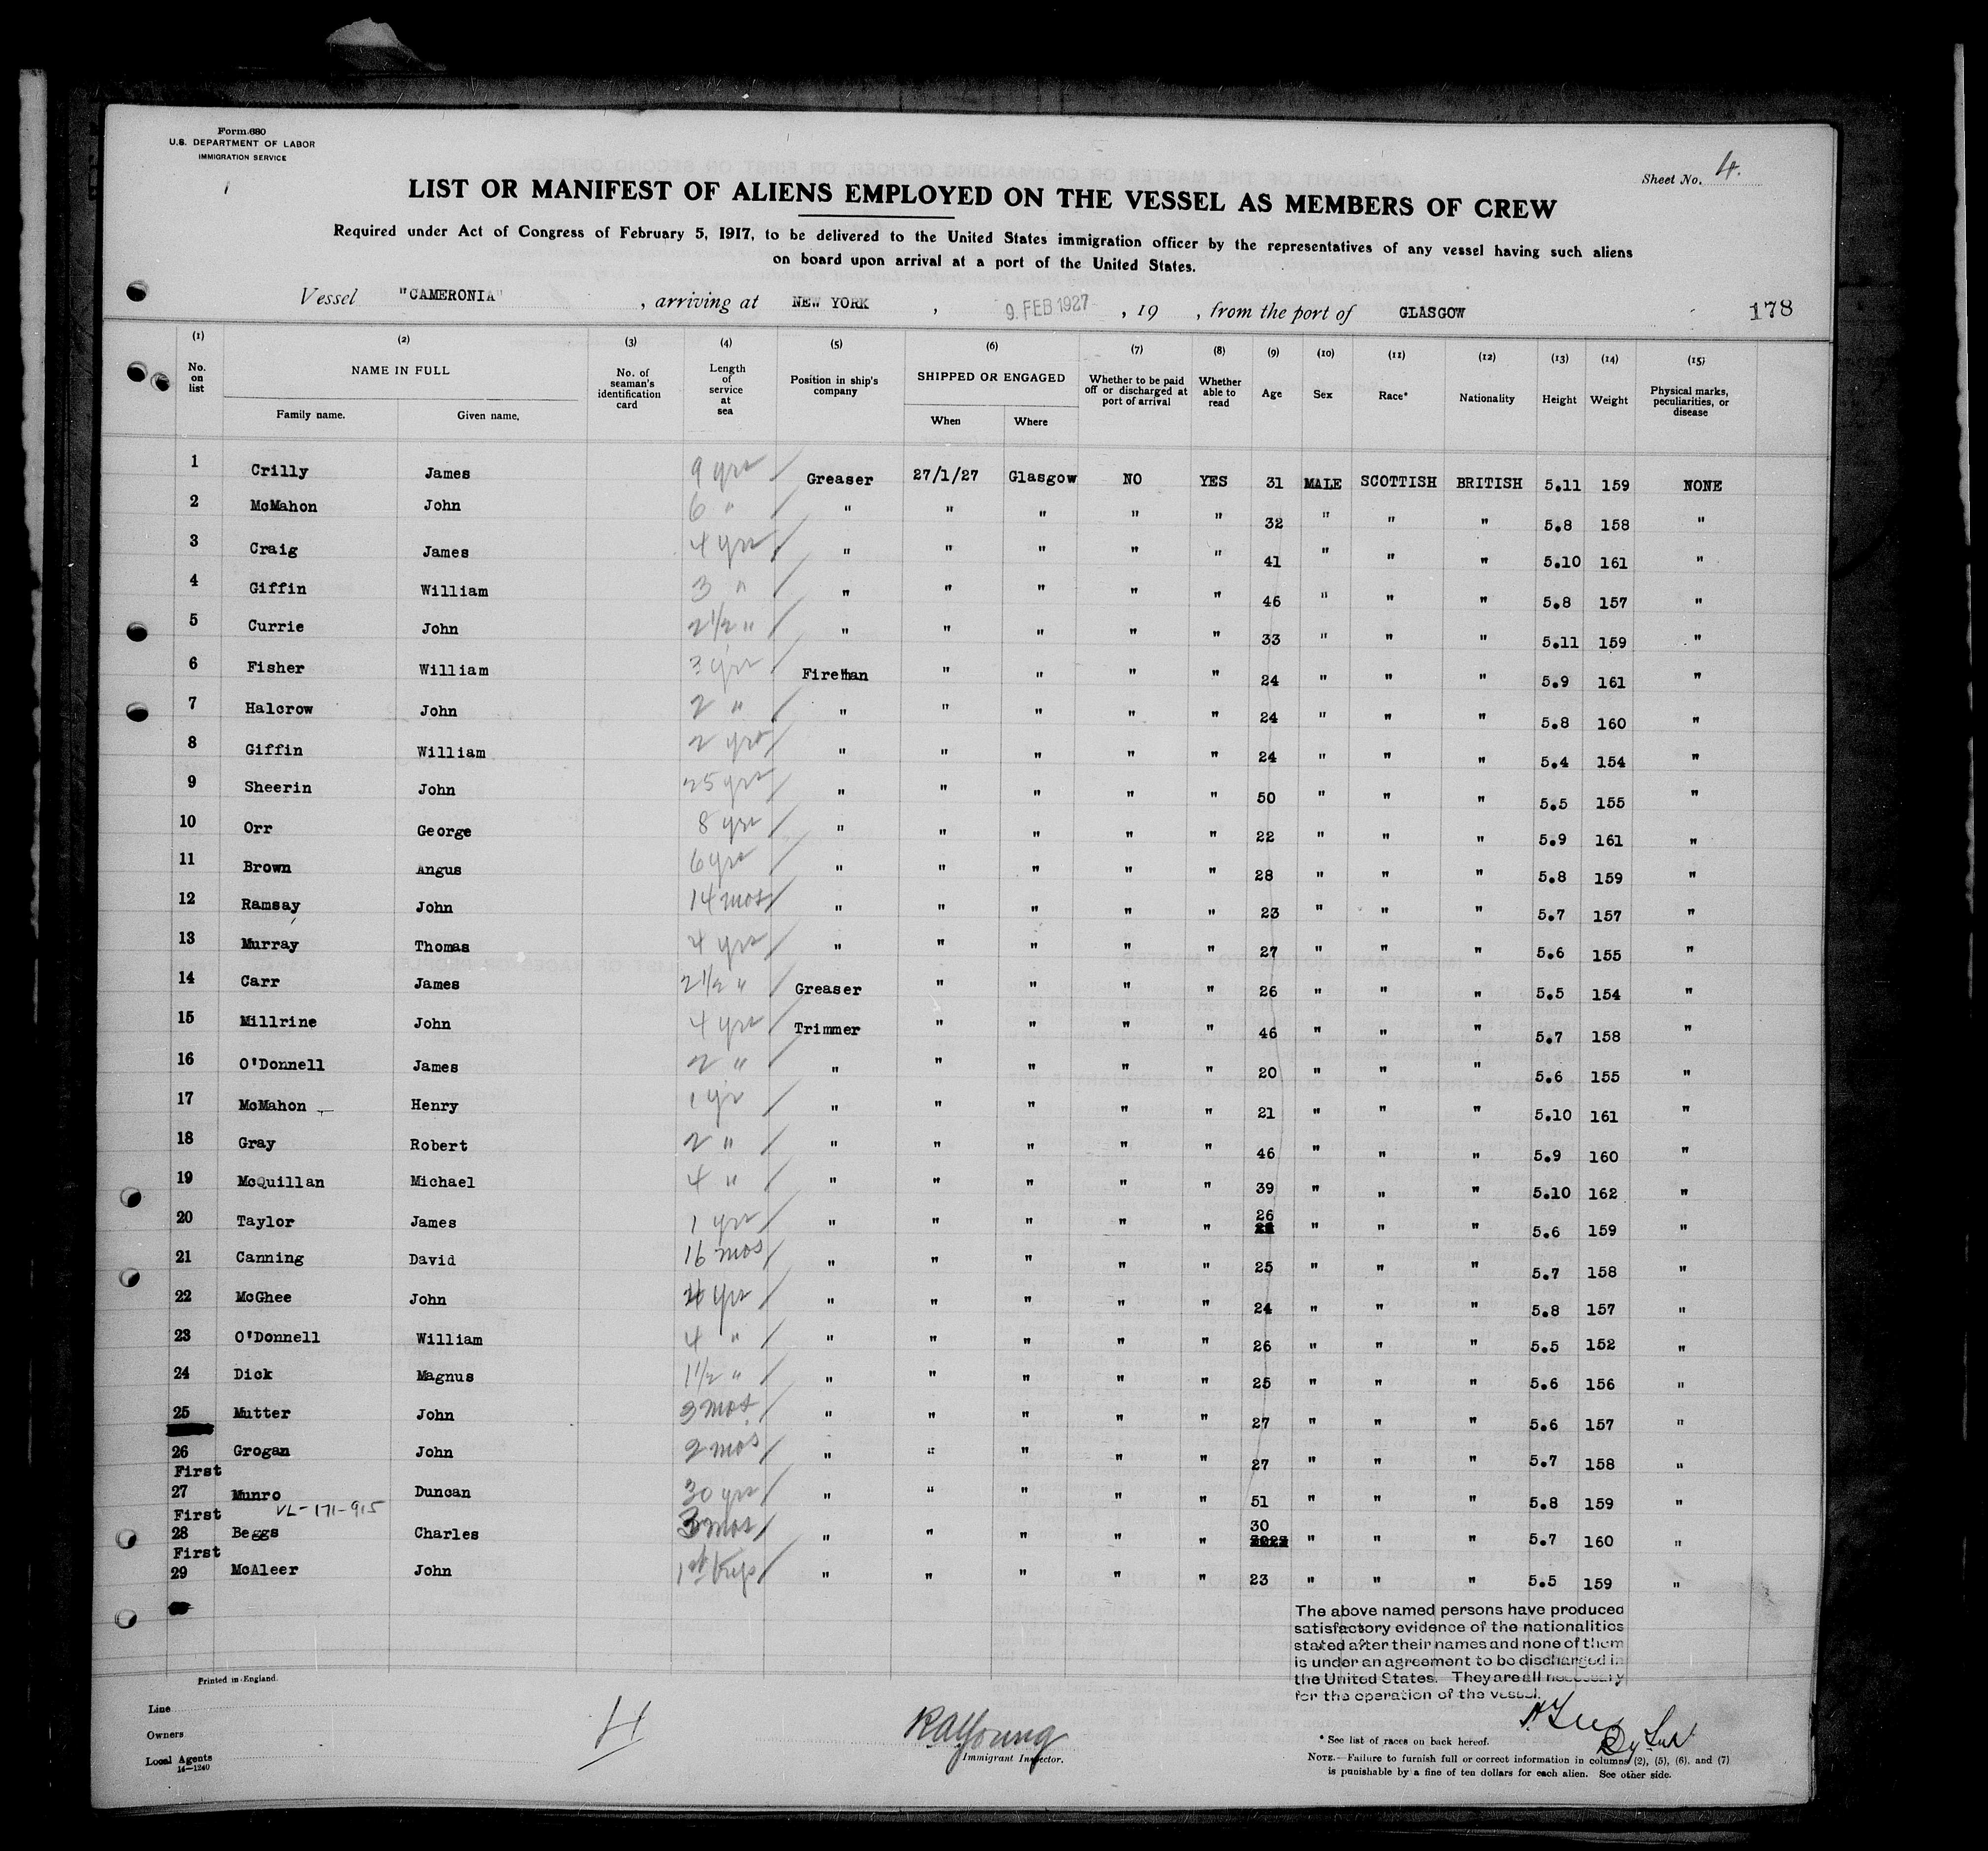 Form 680
U.S. DEPARTMENT OF LABOR
IMMIGRATION SERVICE
Sheet No. 4.
LIST OR MANIFEST OF ALIENS EMPLOYED ON THE VESSEL AS MEMBERS OF CREW
Required under Act of Congress of February 5, 1917, to be delivered to the United States immigration officer by the representatives of any vessel having such aliens
on board upon arrival at a port of the United States.
Vessel "CAMERONIA" , arriving at NEW YORK , 9. FEB 1927 , 19 , from the port of GLASGOW 178
(1) (2) (3) (4) (5) (6) (7) (8) (9) (10) (11) (12) (13) (14) (15)
No. on list NAME IN FULL Family name. Given name. No. of seaman's identification card Length of service at sea Position in ship's company SHIPPED OR ENGAGED When Where Whether to be paid off or discharged at port of arrival Whether able to read Age Sex Race* Nationality Height Weight Physical marks, peculiarities, or disease
1 Crilly James 9 yrs / Greaser 27/1/27 Glasgow NO YES 31 MALE SCOTTISH BRITISH 5.11 159 NONE
2 McMahon John 6 " / " " " " " 32 " " " 5.8 158 "
3 Craig James 4 yrs / " " " " " 41 " " " 5.10 161 "
4 Giffin William 3 " / " " " " " 46 " " " 5.8 157 "
5 Currie John 2 1/2 " / " " " " " 33 " " " 5.11 159 "
6 Fisher William 3 yrs / Fireman " " " " 24 " " " 5.9 161 "
7 Halcrow John 2 " / " " " " " 24 " " " 5.8 160 "
8 Giffin William 2 yrs / " " " " " 24 " " " 5.4 154 "
9 Sheerin John 25 yrs / " " " " " 50 " " " 5.5 155 "
10 Orr George 8 yrs / " " " " " 22 " " " 5.9 161 "
11 Brown Angus 6 yrs / " " " " " 28 " " " 5.8 159 "
12 Ramsay John 14 mos / " " " " " 23 " " " 5.7 157 "
13 Murray Thomas 4 yrs / " " " " " 27 " " " 5.6 155 "
14 Carr James 2 1/2 " / Greaser " " " " 26 " " " 5.5 154 "
15 Millrine John 4 yrs / Trimmer " " " " 46 " " " 5.7 158 "
16 O'Donnell James 2 " / " " " " " 20 " " " 5.6 155 "
17 McMahon Henry 1 yr / " " " " " 21 " " " 5.10 161 "
18 Gray Robert 2 " / " " " " " 46 " " " 5.9 160 "
19 McQuillan Michael 4 " / " " " " " 39 " " " 5.10 162 "
20 Taylor James 1 yrs / " " " " " 26 " " " 5.6 159 "
21 Canning David 16 mos / " " " " " 25 " " " 5.7 158 "
22 McGhee John 4 yrs / " " " " " 24 " " " 5.8 157 "
23 O'Donnell William 4 " / " " " " " 26 " " " 5.5 152 "
24 Dick Magnus 1 1/2 " / " " " " " 25 " " " 5.6 156 "
25 Mutter John 3 mos / " " " " " 27 " " " 5.6 157 "
26 Grogan John 2 mos / " " " " " 27 " " " 5.7 158 "
First
27 Munro Duncan 30 yrs / " " " " " 51 " " " 5.8 159 "
First VL-171-915
28 Beggs Charles 3 mos / " " " " " 30 " " " 5.7 160 "
First
29 McAleer John 1st trip / " " " " " 23 " " " 5.5 159 "
The above named persons have produced
satisfactory evidence of the nationalities
stated after their names and none of them
is under an agreement to be discharged in
the United States. They are all necessary
for the operation of the vessel.
Printed in England.
Line
Owners
Local Agents
14—1240
H
RAYoung
Immigrant Inspector.
* See list of races on back hereof.
NOTE.—Failure to furnish full or correct information in columns (2), (5), (6), and (7)
is punishable by a fine of ten dollars for each alien. See other side.